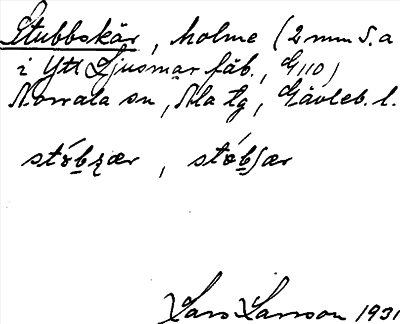 Stubbskär, holme (2 mm S.a
i Ytt Ljusmar fäb., G110)
Norrala sn, Ala tg, Gävleb. l.
stób̲ʂær, stób̲ʃær
Lars Larsson 1931